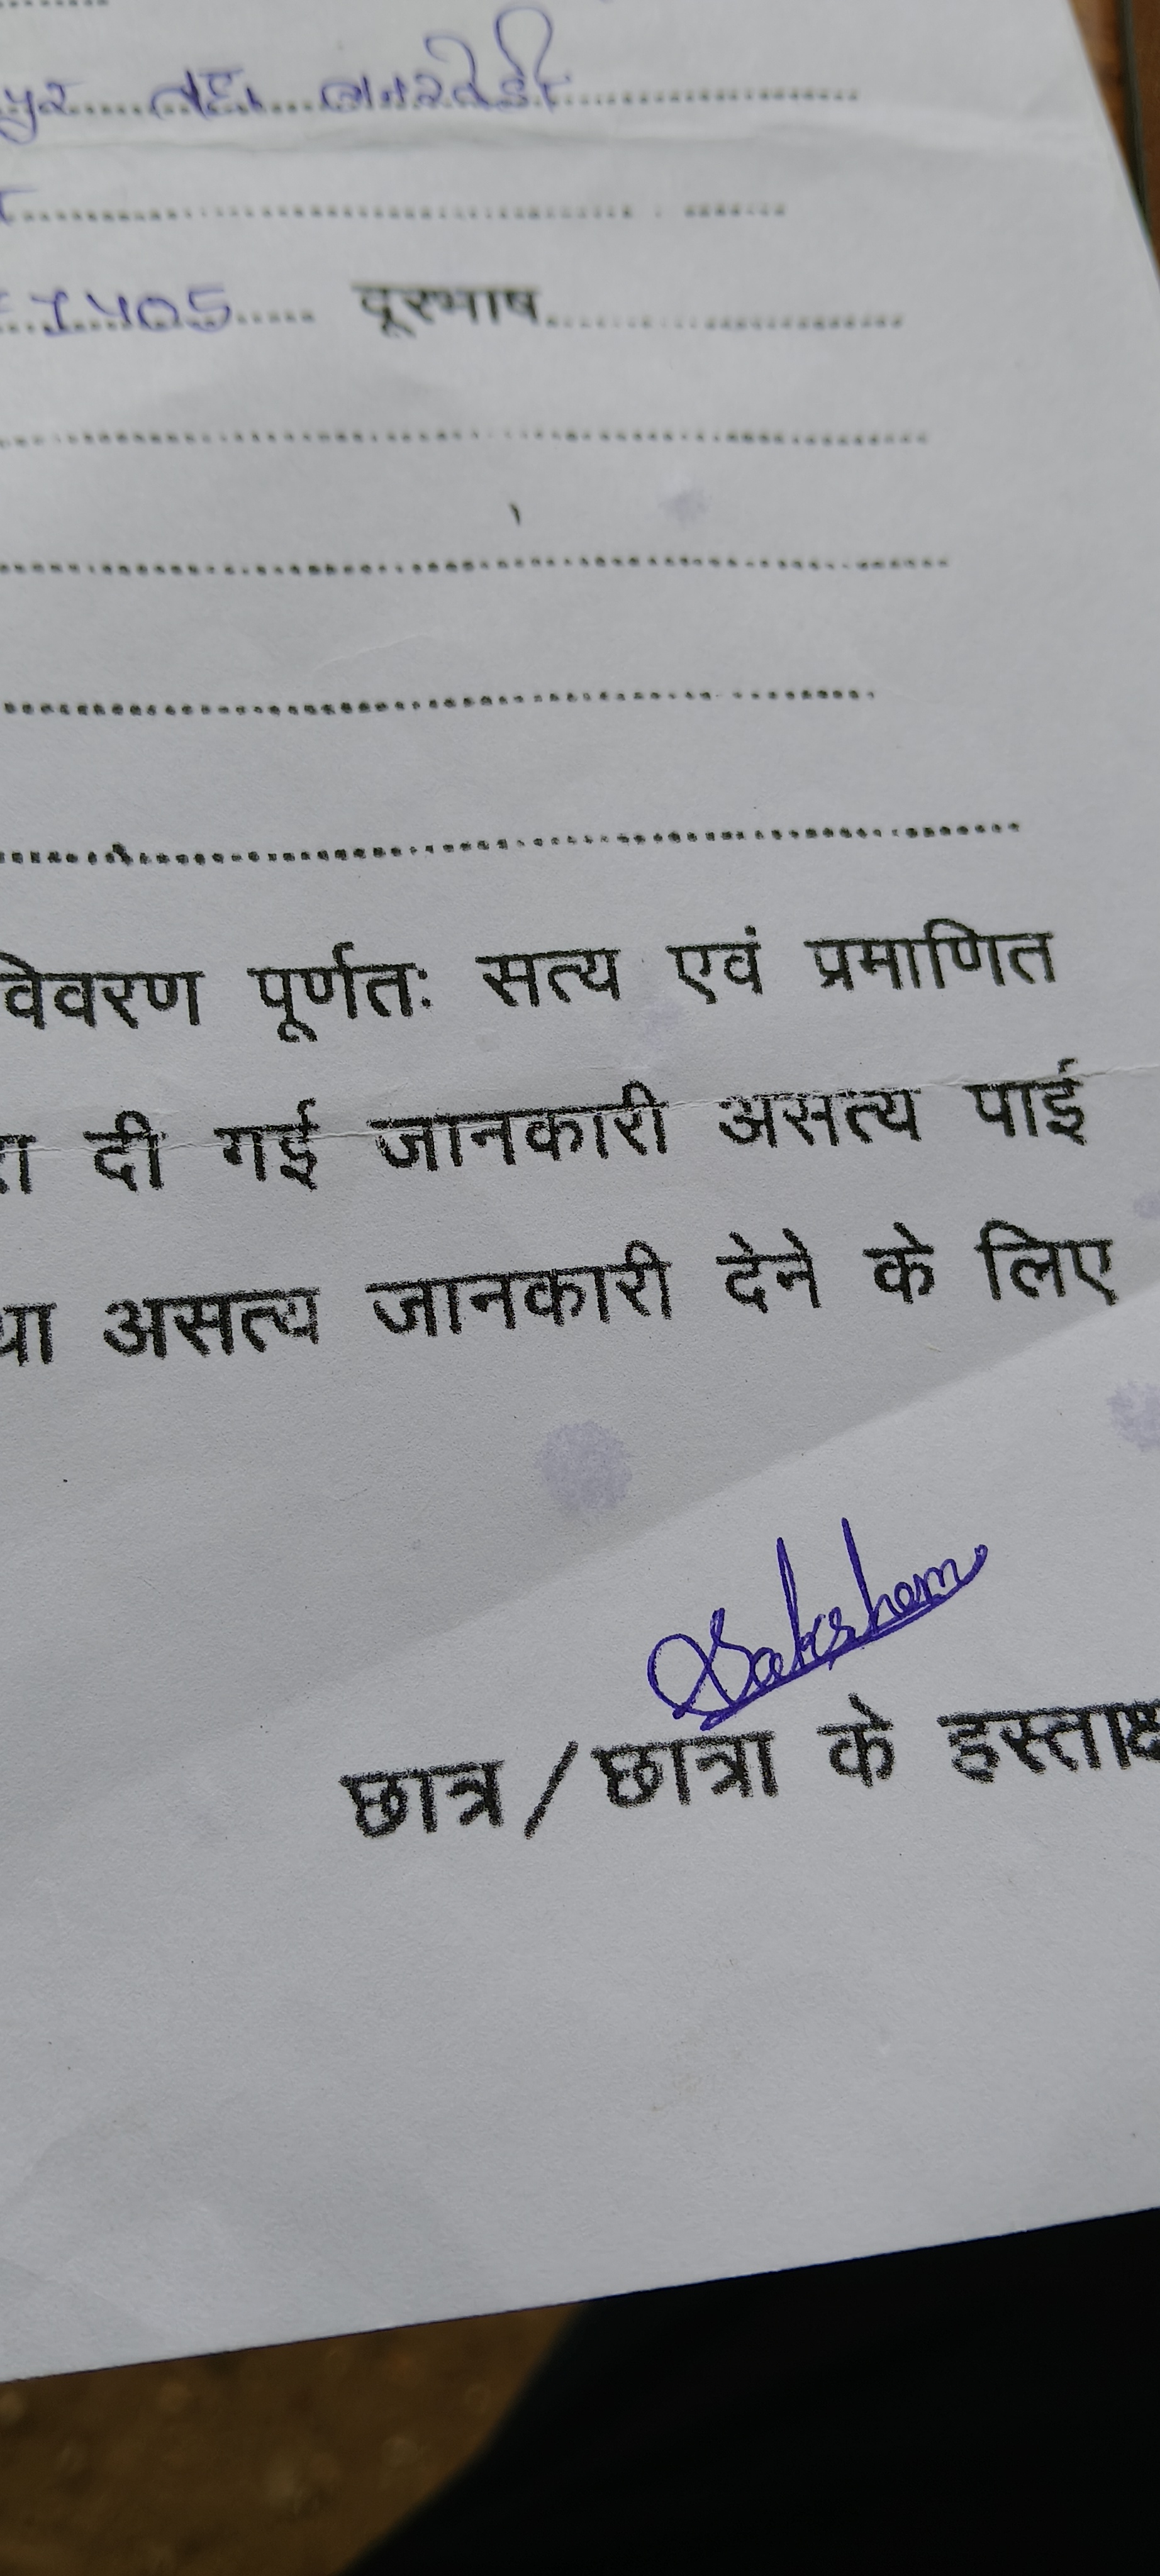 पुर तह. बानसेडी
1405 दूरभाष
विवरण पूर्णतः सत्य एवं प्रमाणित
दी गई जानकारी असत्य पाई
असत्य जानकारी देने के लिए
Saksham
छात्र/छात्रा के हस्ताक्ष